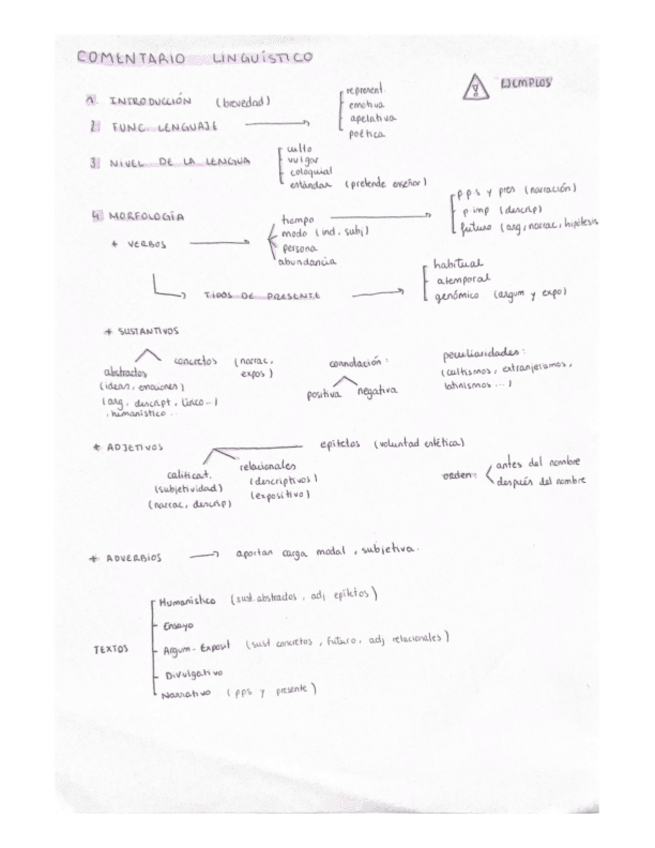 COMENTARIO LINGUÍSTICO
EJEMPLOS
1. INTRODUCCIÓN (brevedad)
2 FUNC. LENGUAJE
represent.
emotiva
apelativa
poética
3 NIVEL DE LA LENGUA
culto
vulgar
coloquial
estándar (pretende enseñar)
4 MORFOLOGÍA
* VERBOS
tiempo
modo (ind, subj)
persona
abundancia
pps y pres (narración)
p imp (descrip)
futuro (arg, narrac, hipótesis
TIPOS DE PRESENTE
habitual
atemporal
genómico (argum y expo)
* SUSTANTIVOS
abstractos
(ideas, emociones)
(arg. descript. lírico...)
humanístico...
concretos (narrac,
expos)
connotación:
positiva negativa
peculiaridades:
(cultismos, extranjerismos,
latinismos ...)
* ADJETIVOS
calificat.
(subjetividad)
(narrac, descrip)
relacionales
(descriptivos)
(expositivo)
epítetos (voluntad estética)
orden:
antes del nombre
después del nombre
* ADVERBIOS
aportan carga modal, subjetiva.
TEXTOS
Humanístico (sust. abstrados, adj epítetos)
Ensayo
Argum-Exposit (sust concretos, futuro, adj relacionales)
Divulgativo
Narrativo (pps y presente)